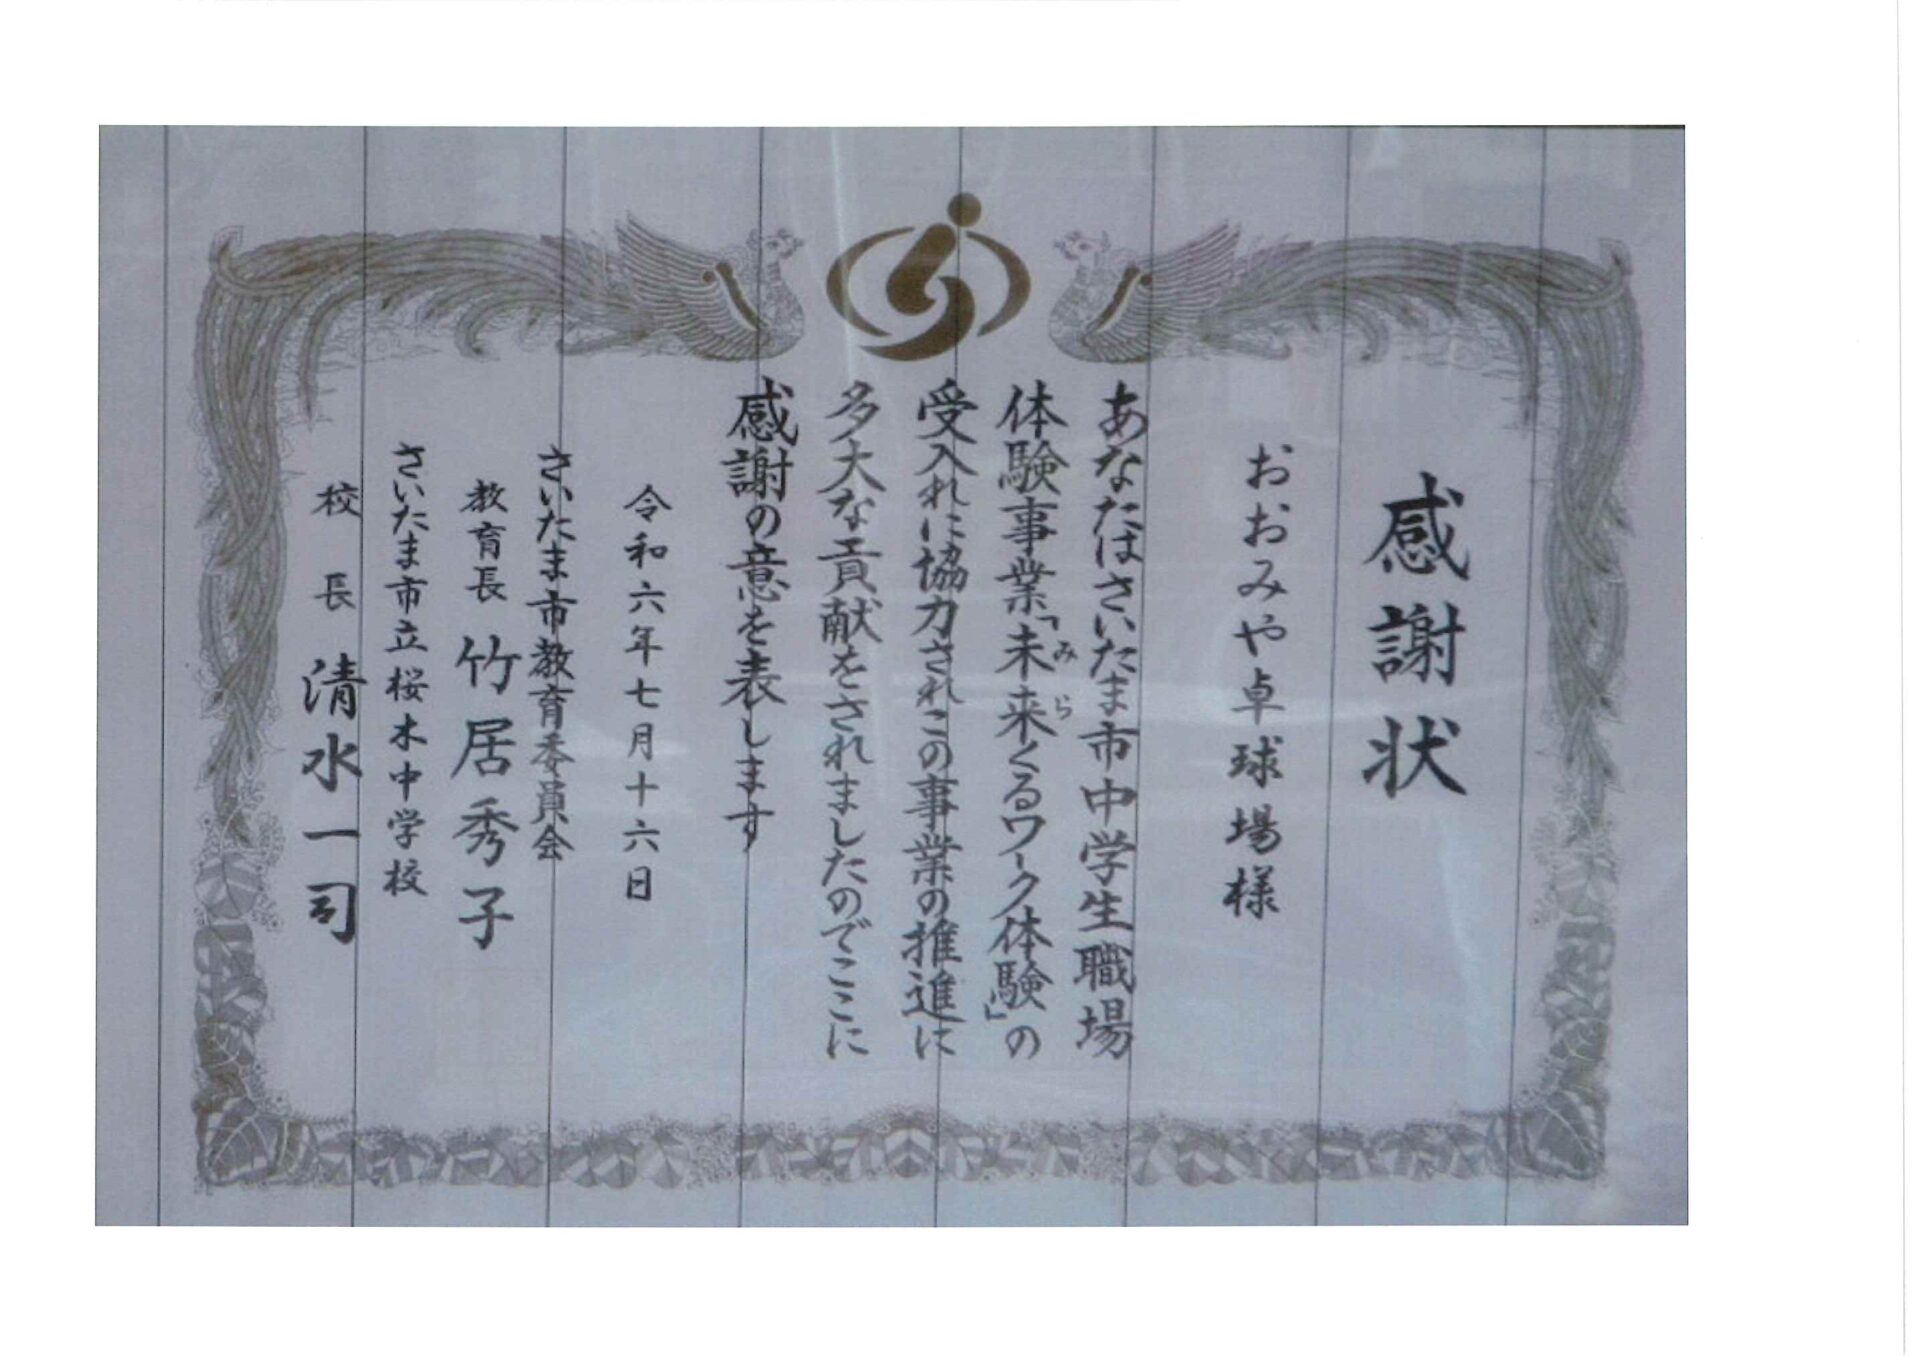 感謝状
おおみや卓球場様
あなたはさいたま市中学生職場
体験事業「未来くるワーク体験」の
みら
受入れに協力されこの事業の推進に
多大な貢献をされましたのでここに
感謝の意を表します
令和六年七月十六日
さいたま市教育委員会
教育長 竹居秀子
さいたま市立桜木中学校
校長 清水一司